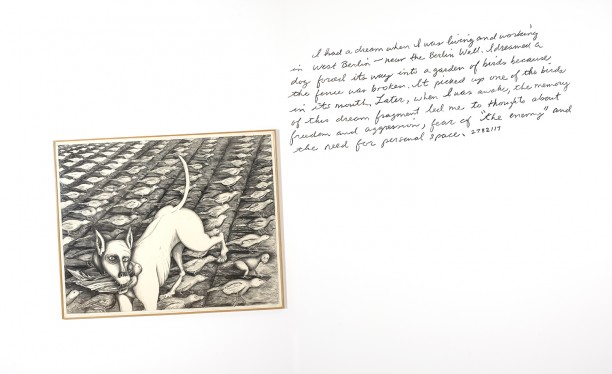 I had a dream when I was living and working
in West Berlin – near the Berlin Wall. I dreamed a
dog forced its way into a garden of birds because
the fence was broken. It picked up one of the birds
in its mouth. Later, when I was awake, the memory
of this dream fragment led me to thoughts about
freedom and aggression, fear of "the enemy" and
the need for personal space.